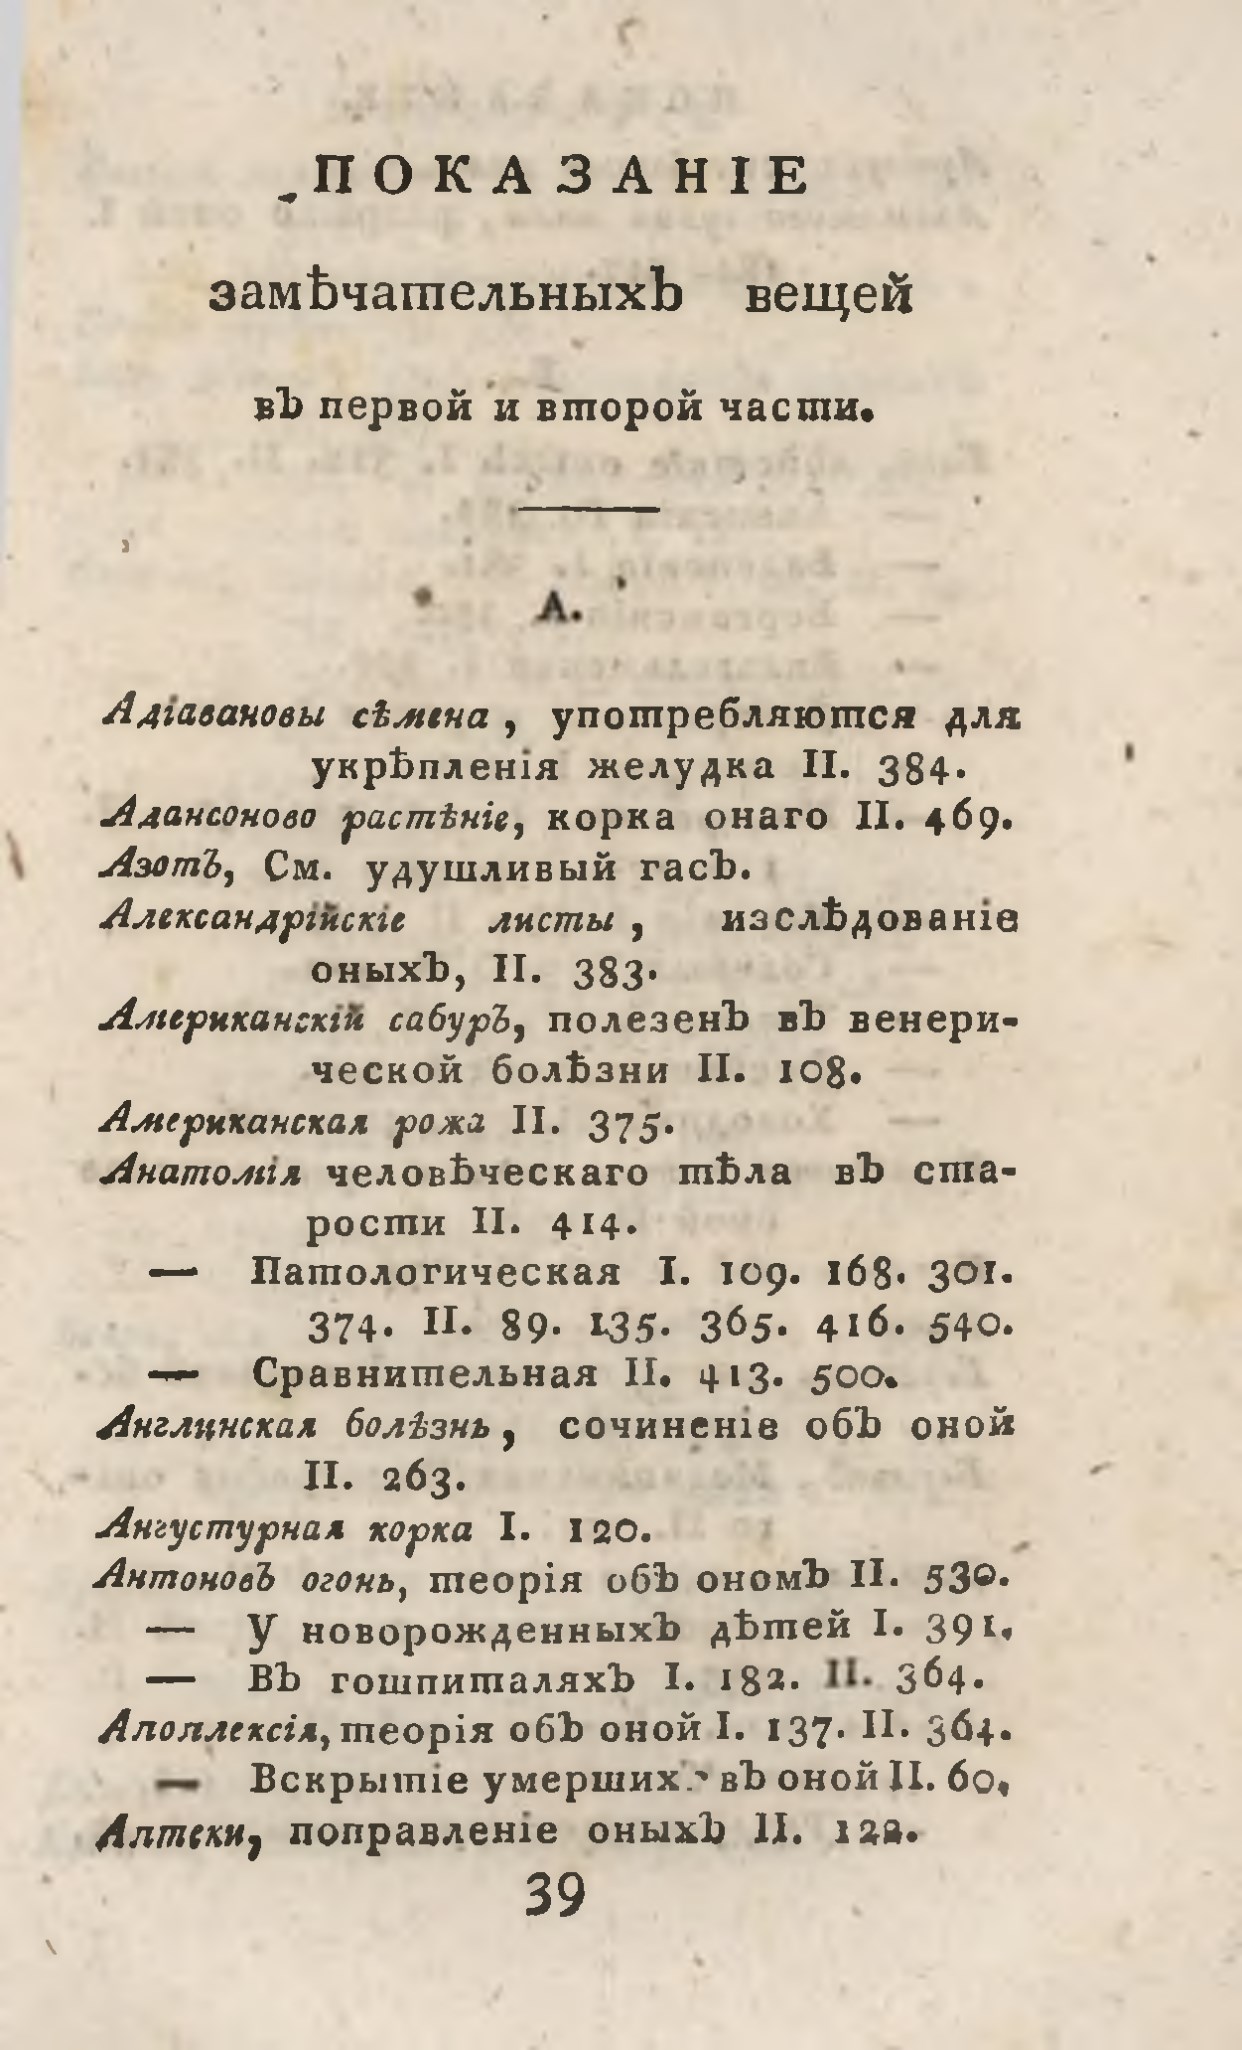 ПОКАЗАНІЕ
замѣчательныхъ вещей
въ первой и второй части.
А.
Адіавановы сѣмена, употребляются для
укрѣпленія желудка II. 384.
Адансоново растѣніе, корка онаго II. 469.
Азотъ, См. удушливый гасъ.
Александрійскіе листы, изслѣдованіе
оныхъ, II. 383.
Американскій сабуръ, полезенъ въ венери-
ческой болѣзни II. 108.
Американская рожа II. 375.
Анатомія человѣческаго тѣла въ ста-
рости II. 414.
— Патологическая I. 109. 168. 301.
374. II. 89. 135. 365. 416. 540.
— Сравнительная II. 413. 500.
Англинская болѣзнь, сочиненіе объ оной
II. 263.
Ангустурная корка I. 120.
Антоновъ огонь, теорія объ ономъ II. 530.
— У новорожденныхъ дѣтей I. 391.
— Въ гошпиталяхъ I. 182. II. 364.
Апоплексія, теорія объ оной I. 137. II. 364.
— Вскрытіе умершихъ въ оной II. 60.
Аптеки, поправленіе оныхъ II. 122.
39